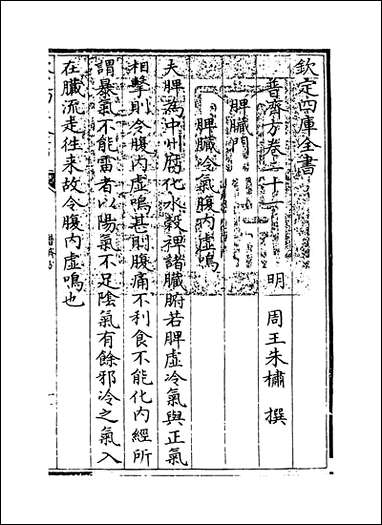 欽定四庫全書
普濟方卷二十一
明 周王朱橚 撰
脾臟門
脾臟冷氣腹内虚鳴
夫脾為中州腐化水穀稗諸臟腑若脾虚冷氣與正氣
相擊則令腹内虚鳴甚則腹痛不利食不能化内經所
謂暴氣不能雷者以陽氣不足隂氣有餘邪冷之氣入
在臟流走往来故令腹内虚鳴也